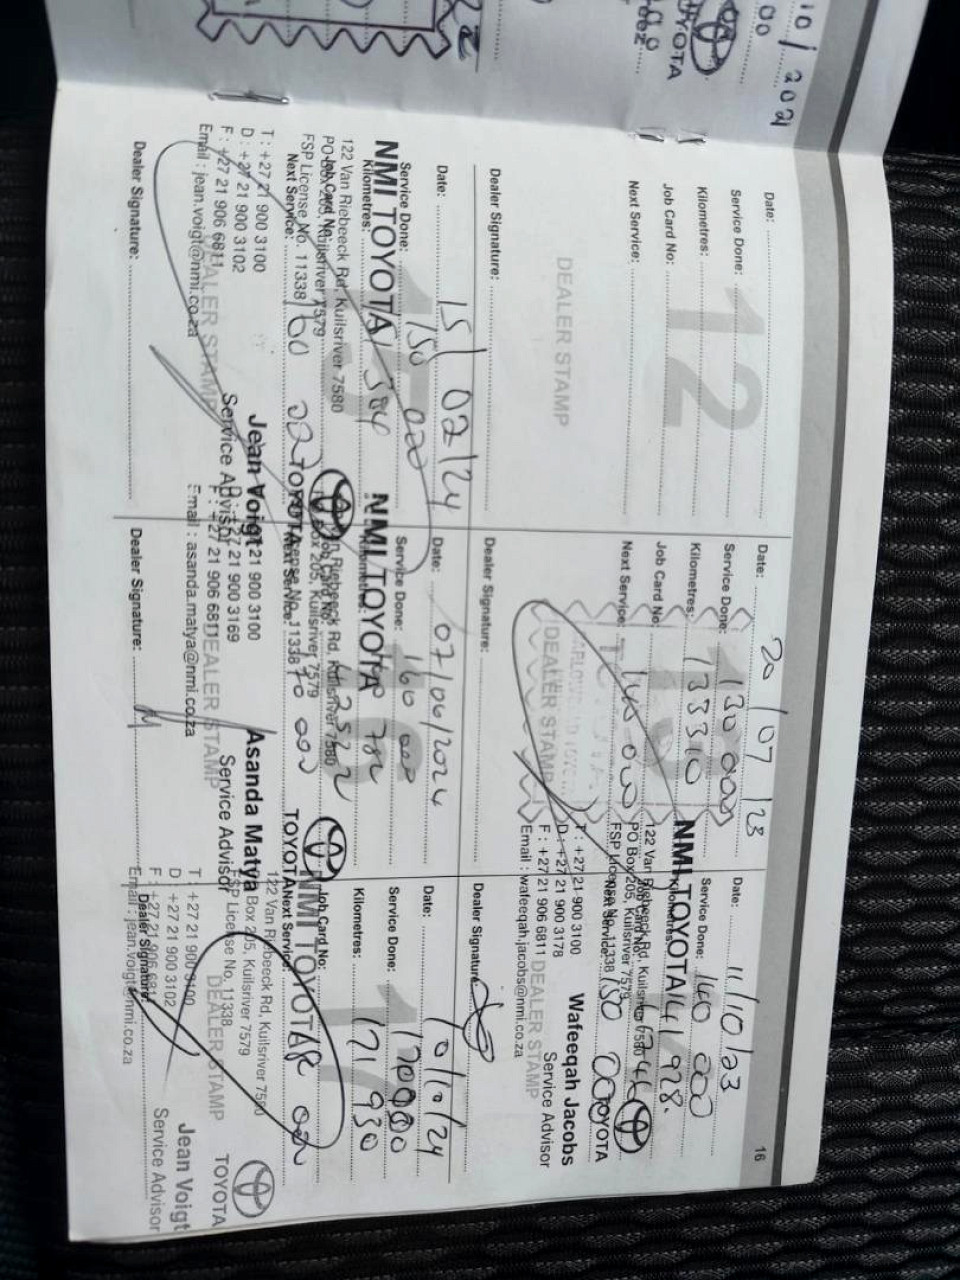 10/2021
00
TOYOTA
16
12
Date:
Service Done:
Kilometres:
Job Card No:
Next Service:
DEALER STAMP
Dealer Signature:
Date: 20/07/23
Service Done: 130 000
Kilometres: 133310
Job Card No:
Next Service: 140 000
DEALER STAMP
Dealer Signature:
Date: 11/10/23
Service Done: 140 000
Kilometres: 141 928.
Job Card No:
Next Service: 150 000
NMI TOYOTA
122 Van Riebeeck Rd, Kuilsriver 7580
PO Box 205, Kuilsriver 7579
FSP License No. 11338
TOYOTA
T : +27 21 900 3100
D : +27 21 900 3178
F : +27 21 906 6811
Email : wafeeqah.jacobs@nmi.co.za
Wafeeqah Jacobs
Service Advisor
DEALER STAMP
Dealer Signature:
15
Date: 15/02/24
Service Done: 150 000
Kilometres:
Job Card No:
Next Service: 160
NMI TOYOTA
122 Van Riebeeck Rd, Kuilsriver 7580
PO Box 205, Kuilsriver 7579
FSP License No. 11338
TOYOTA
T : +27 21 900 3100
D : +27 21 900 3102
F : +27 21 906 6811
Email : jean.voigt@nmi.co.za
Jean Voigt
Service Advisor
DEALER STAMP
Dealer Signature:
16
Date: 07/06/2024
Service Done: 160 000
Kilometres:
Job Card No:
Next Service: 170 000
NMI TOYOTA
Van Riebeeck Rd, Kuilsriver 7580
Box 205, Kuilsriver 7579
License No. 11338
TOYOTA
21 900 3100
D : +27 21 900 3169
F : +27 21 906 6811
Email : asanda.matya@nmi.co.za
Asanda Matya
Service Advisor
DEALER STAMP
Dealer Signature:
Date:
Service Done: 170000
Kilometres: 171 930
Job Card No:
Next Service:
NMI TOYOTA
122 Van Riebeeck Rd, Kuilsriver 7580
Box 205, Kuilsriver 7579
FSP License No. 11338
TOYOTA
T : +27 21 900 3100
D : +27 21 900 3102
F : +27 21 906 6811
Email : jean.voigt@nmi.co.za
Jean Voigt
Service Advisor
DEALER STAMP
Dealer Signature: